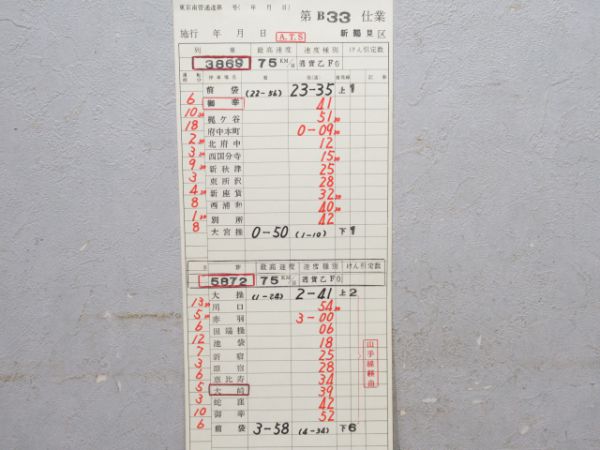 東京南管通達第 号( 年 月 日)
第 B33 仕業
施行 年 月 日 A.T.S 新鶴見区
列車 最高速度 速度種別 けん引定数
3869 75 KM/H 通貨乙 F0
停車場名 着 発(通) 着発線 記事
前袋 (22-56) 23-35 上1
6 御幸 41
10 梶ヶ谷 51
18 府中本町 0-09
2 北府中 12
3 西国分寺 15
9 新秋津 25
3 東所沢 28
4 新座貨 32
8 西浦和 40
1 別所 42
8 大宮操 0-50 (1-10) 下1
最高速度 速度種別 けん引定数
5872 75 KM/H 通貨乙 F0
大操 (1-24) 2-41 上2
13 川口 54
5 赤羽 3-00
6 田端操 06
12 池袋 18
7 新宿 25
3 原宿 28
6 恵比寿 34
5 大崎 39
3 蛇窪 42
10 御幸 52
6 前袋 3-58 (4-34) 下6
山手線経由